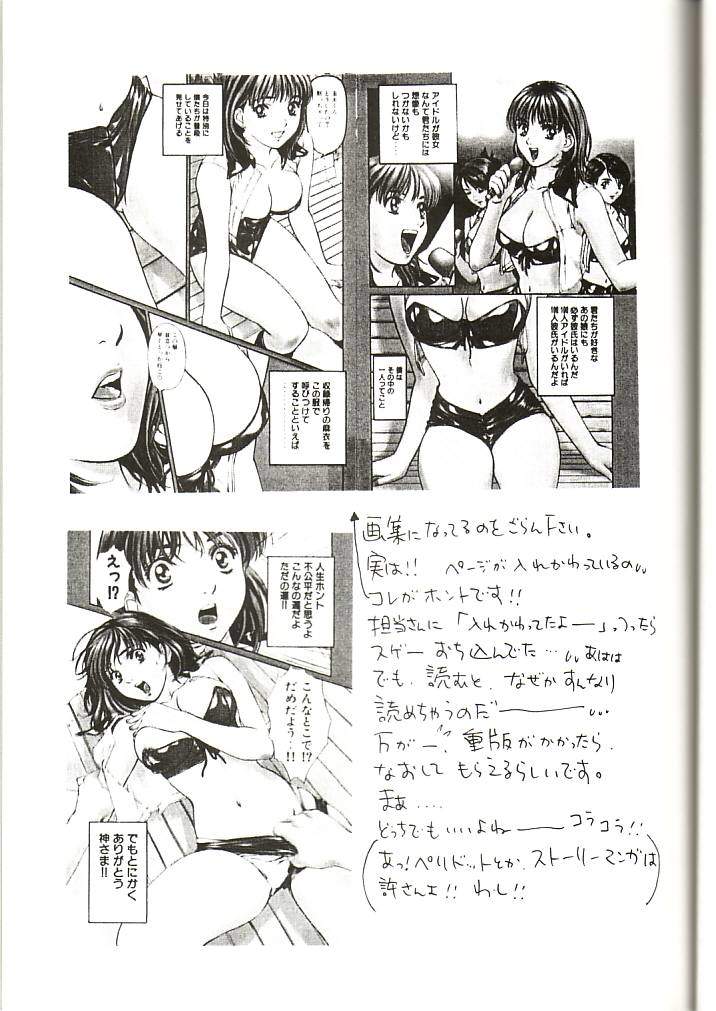 アイドルが彼女
なんて君たちには
想像も
つかないかも
しれないけど…
君たちが好きな
あの娘にも
必ず彼氏はいるんだ
僧人アイドルがいれば
僧人彼氏がいるんだよ
僕は
その中の
一人ってこと
今日は特別に
僕たちが普段
していることを
見せてあげる
収録帰りの麻衣を
この服で
呼びつけて
することといえば
人生ホント
不公平だと思うよ
こんなの運だよ
ただの運!!
えっ!?
こんなとこで!?
だめだよう…!!
でもとにかく
ありがとう
神さま!!
画集になってるのをごらん下さい。
実は!! ページが入れかわっているの
コレがホントです!!
担当さんに「入れかわってたよー」っつったら
スゲー おち込んでた… あはは
でも、読むと、なぜかすんなり
読めちゃうのだー
万が一、重版がかかったら、
なおして もらえるらしいです。
まぁ….
どっちでもいいよねー コラコラ!!
(あっ!ペリドットとか、ストーリーマンガは
許さんよ!! わし!!)